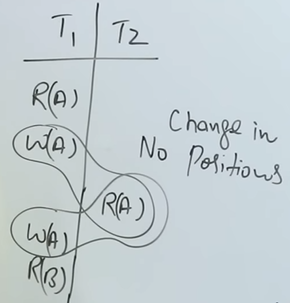 T1 T2
R(A)
W(A)
R(A)
W(A)
R(B)
Change in
No Positions